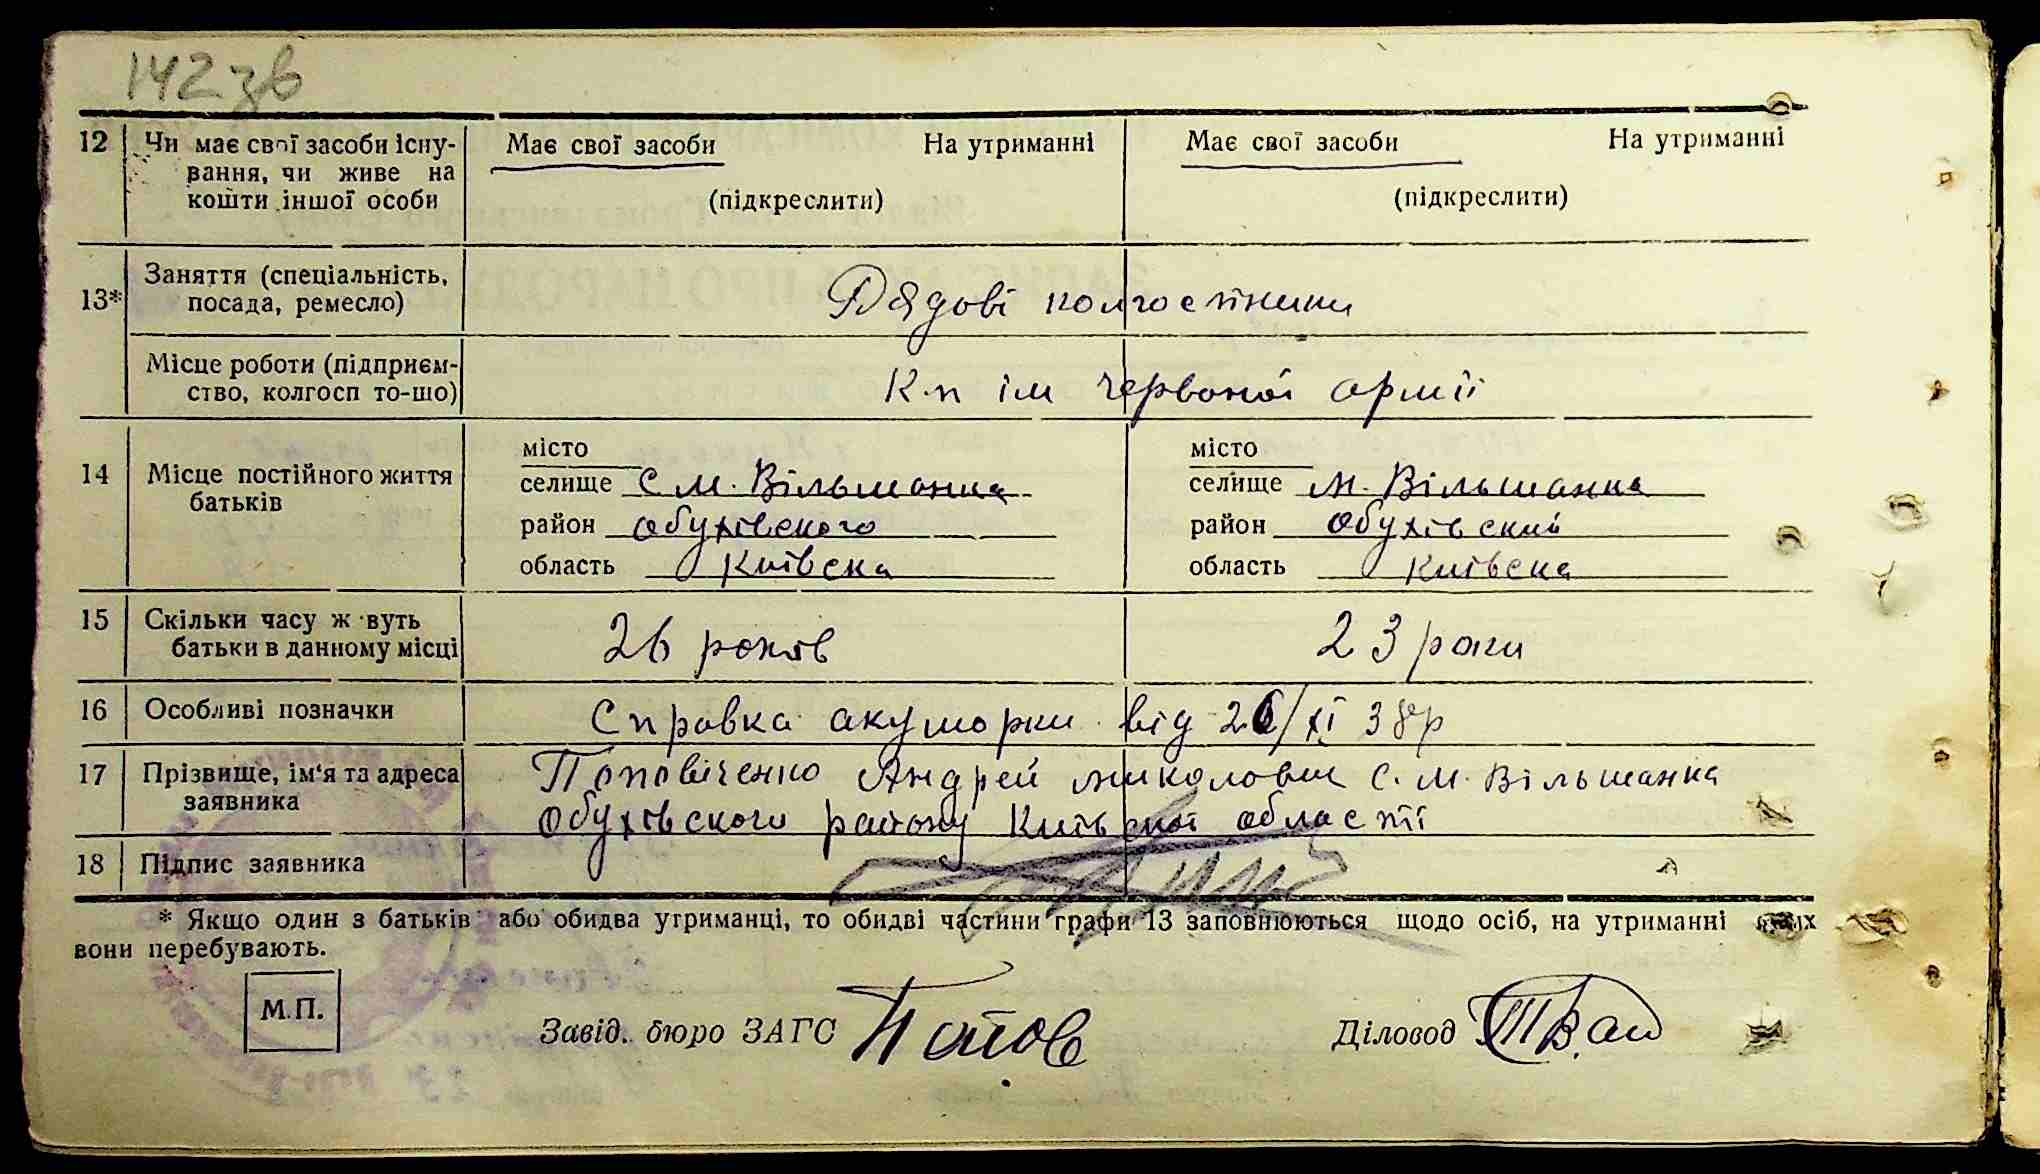 142 зв
12 Чи має свої засоби існування, чи живе на кошти іншої особи Має свої засоби На утриманні Має свої засоби На утриманні
(підкреслити) (підкреслити)
13* Заняття (спеціальність, посада, ремесло) Рядові колгоспники
Місце роботи (підприємство, колгосп то-що) К-п ім червоної армії
14 Місце постійного життя батьків
місто місто
селище с М. Вільшанка селище М. Вільшанка
район Обухівського район Обухівский
область Київска область Київска
15 Скільки часу ж вуть батьки в данному місці 26 років 23 роки
16 Особливі позначки Справка акушорки від 26/XI 38р
17 Прізвище, ім'я та адреса заявника Поповіченко Андрей миколович с. М. Вільшанка
Обухівського району Київської області
18 Підпис заявника
* Якщо один з батьків або обидва утриманці, то обидві частини графи 13 заповнюються щодо осіб, на утриманні яких
вони перебувають.
М.П.
Завід. бюро ЗАГС Діловод